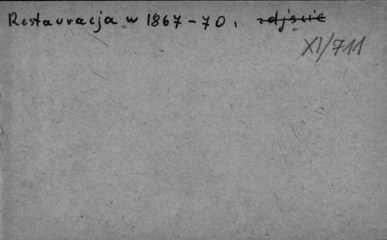 Restauracja w 1867-70. zdjęcie
XI/711